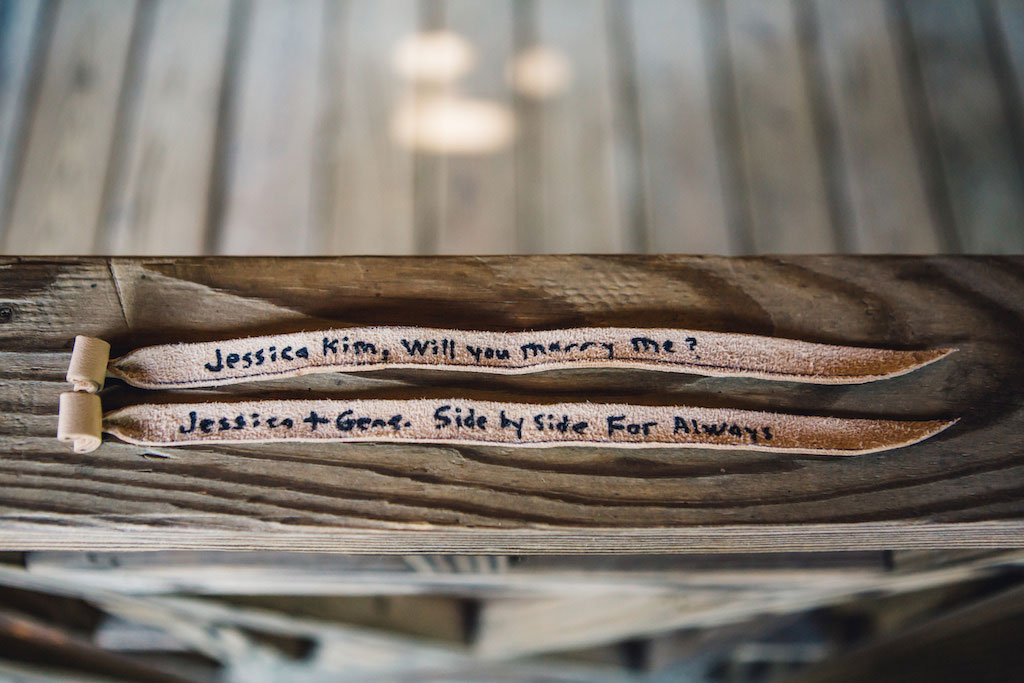 Jessica Kim, Will you marry me?
Jessica + Gene. Side by Side For Always